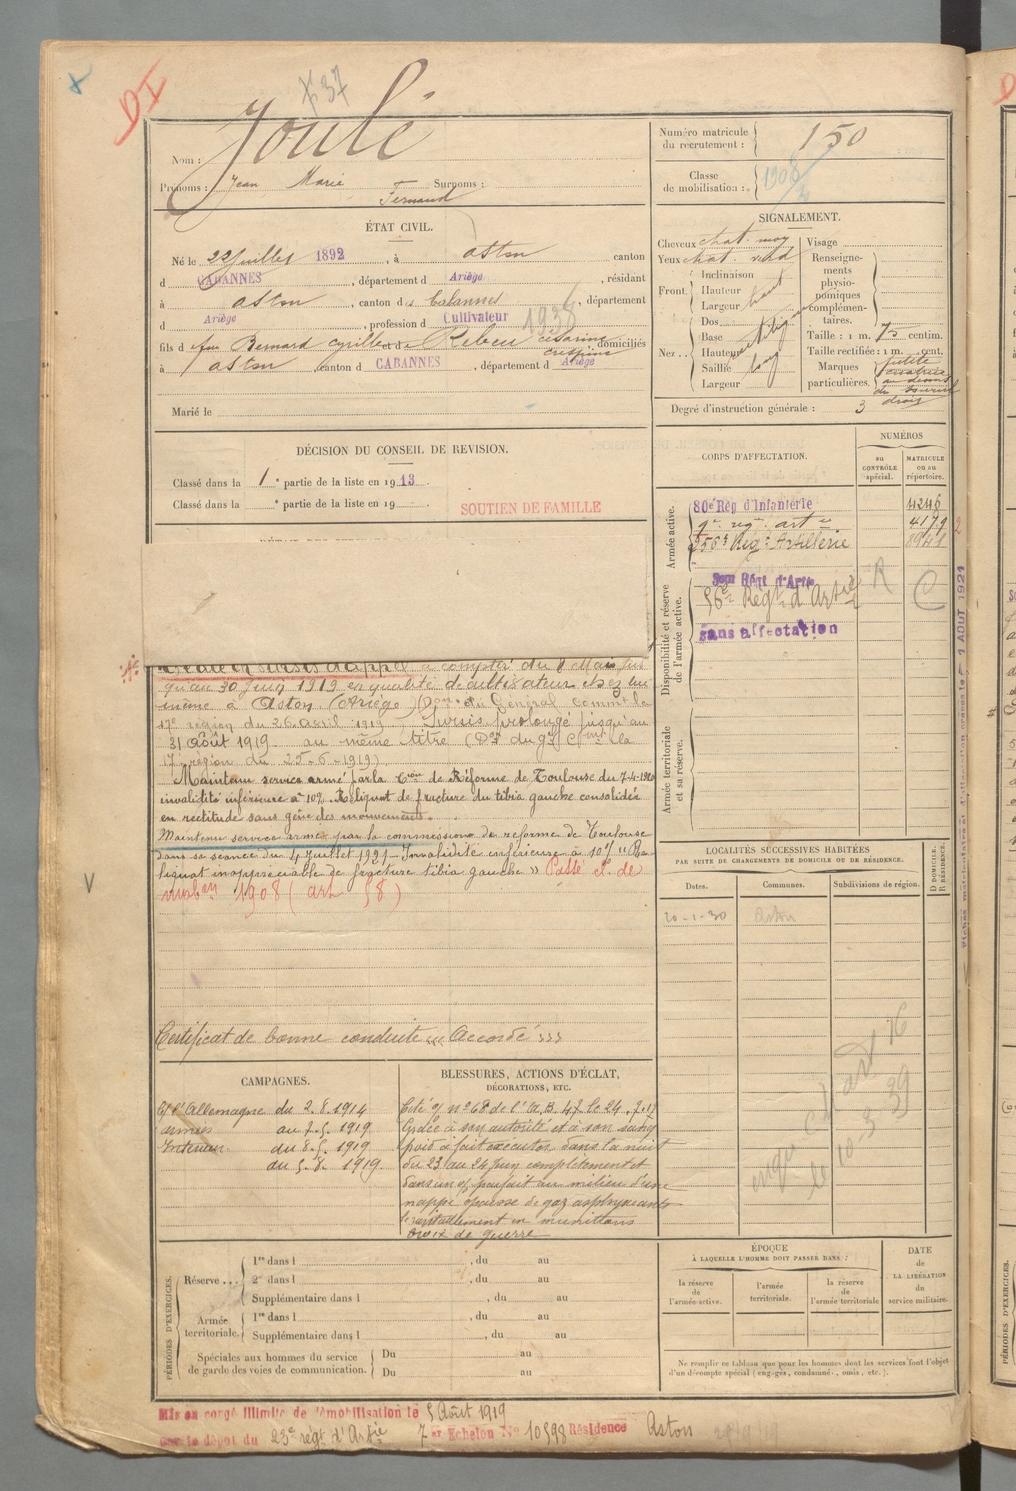 DI
X 37
Nom : Joulé
Prénoms : Jean Marie Fernand Surnoms :
Numéro matricule du recrutement : 150
Classe de mobilisation : 1908
ÉTAT CIVIL.
Né le 22 Juillet 1892, à Aston canton
d CABANNES, département d Ariège, résidant
à Aston, canton de Cabannes, département
d Ariège, profession d Cultivateur
1938
fils d feu Bernard Cyrille et de Rebeu Césarine Crespine domiciliés
à Aston canton d CABANNES, département d Ariège
Marié le
SIGNALEMENT.
Cheveux chat. moy
Yeux chat.
Front. Inclinaison
Hauteur haut
Largeur
Nez Dos
Base
Hauteur
Saillie long
Largeur
Visage
Renseignements physionomiques complémentaires.
Taille : 1 m. 75 centim.
Taille rectifiée : 1 m. cent.
Marques particulières. petite cicatrice au dessous du sourcil droit
Degré d'instruction générale : 3
DÉCISION DU CONSEIL DE REVISION.
Classé dans la 1e partie de la liste en 1913.
Classé dans la e partie de la liste en 19
SOUTIEN DE FAMILLE
CORPS D'AFFECTATION.
NUMÉROS
au CONTRÔLE spécial.
MATRICULE ou au répertoire.
Armée active.
80e Rég d'Infanterie 4246
9e reg. art ie 4179 2
256e Rég t Artillerie 8941
Disponibilité et réserve de l'armée active.
Régt d'Artie
56e Régt d'Artie R C
sans affectation
Armée territoriale et sa réserve.
sursis d'appel à compter du 8 Mai jus
qu'au 30 Juin 1919 en qualité de cultivateur chez lui
même à Aston (Ariège) (Don du Général Commt la
17e région du 26 avril 1919 Sursis prolongé jusqu'au
31 Août 1919 au même titre (Don du gal Cmt la
17e région du 25-6-1919)
Maintenu service armé par la Cion de Réforme de Toulouse du 7-4-1920
invalidité inférieure à 10%. Reliquat de fracture du tibia gauche consolidée
en rectitude sans gêne des mouvements.
Maintenu service armé par la commission de réforme de Toulouse
dans sa séance du 4 Juillet 1921 - Invalidité inférieure à 10% "Re-
liquat inappréciable de fracture tibia gauche" Passé cl. de
mobon 1908 (art 58)
V
Certificat de bonne conduite "Accordé"
LOCALITÉS SUCCESSIVES HABITÉES
PAR SUITE DE CHANGEMENTS DE DOMICILE OU DE RÉSIDENCE.
Dates. Communes. Subdivisions de région. D DOMICILE. R RÉSIDENCE.
20-1-30 Aston
le 10-3 39
1 AOUT 1921
CAMPAGNES.
C/ l'Allemagne du 2.8.1914
armées au 7.5.1919
Intérieur du 8.5.1919
du 5.8.1919.
BLESSURES, ACTIONS D'ÉCLAT,
DÉCORATIONS, ETC.
Cité o/ no 68 de l'A.D. 47 le 24.7.17
Grâce à son autorité et à son sang
froid a fait exécuter dans la nuit
du 23 au 24 Juin complètement et
dans un o/ parfait au milieu d'une
nappe épaisse de gaz asphyxiants
le ravitaillement en munitions
Croix de guerre
PÉRIODES D'EXERCICES.
Réserve... 1re dans l , du au
2e dans l , du au
Supplémentaire dans l , du au
Armée territoriale. 1re dans l , du au
Supplémentaire dans l , du au
Spéciales aux hommes du service de garde des voies de communication. Du au
Du au
ÉPOQUE
À LAQUELLE L'HOMME DOIT PASSER DANS :
la réserve de l'armée active.
l'armée territoriale.
la réserve de l'armée territoriale
DATE de LA LIBÉRATION du service militaire.
Ne remplir ce tableau que pour les hommes dont les services font l'objet
d'un décompte spécial (engagés, condamnés, omis, etc.).
Mis en congé illimité de démobilisation le 5 Août 1919
par le dépôt du 23e régt d'Artie 7 er Echelon No 10598 Résidence Aston
PÉRIODES D'EXERCICES.